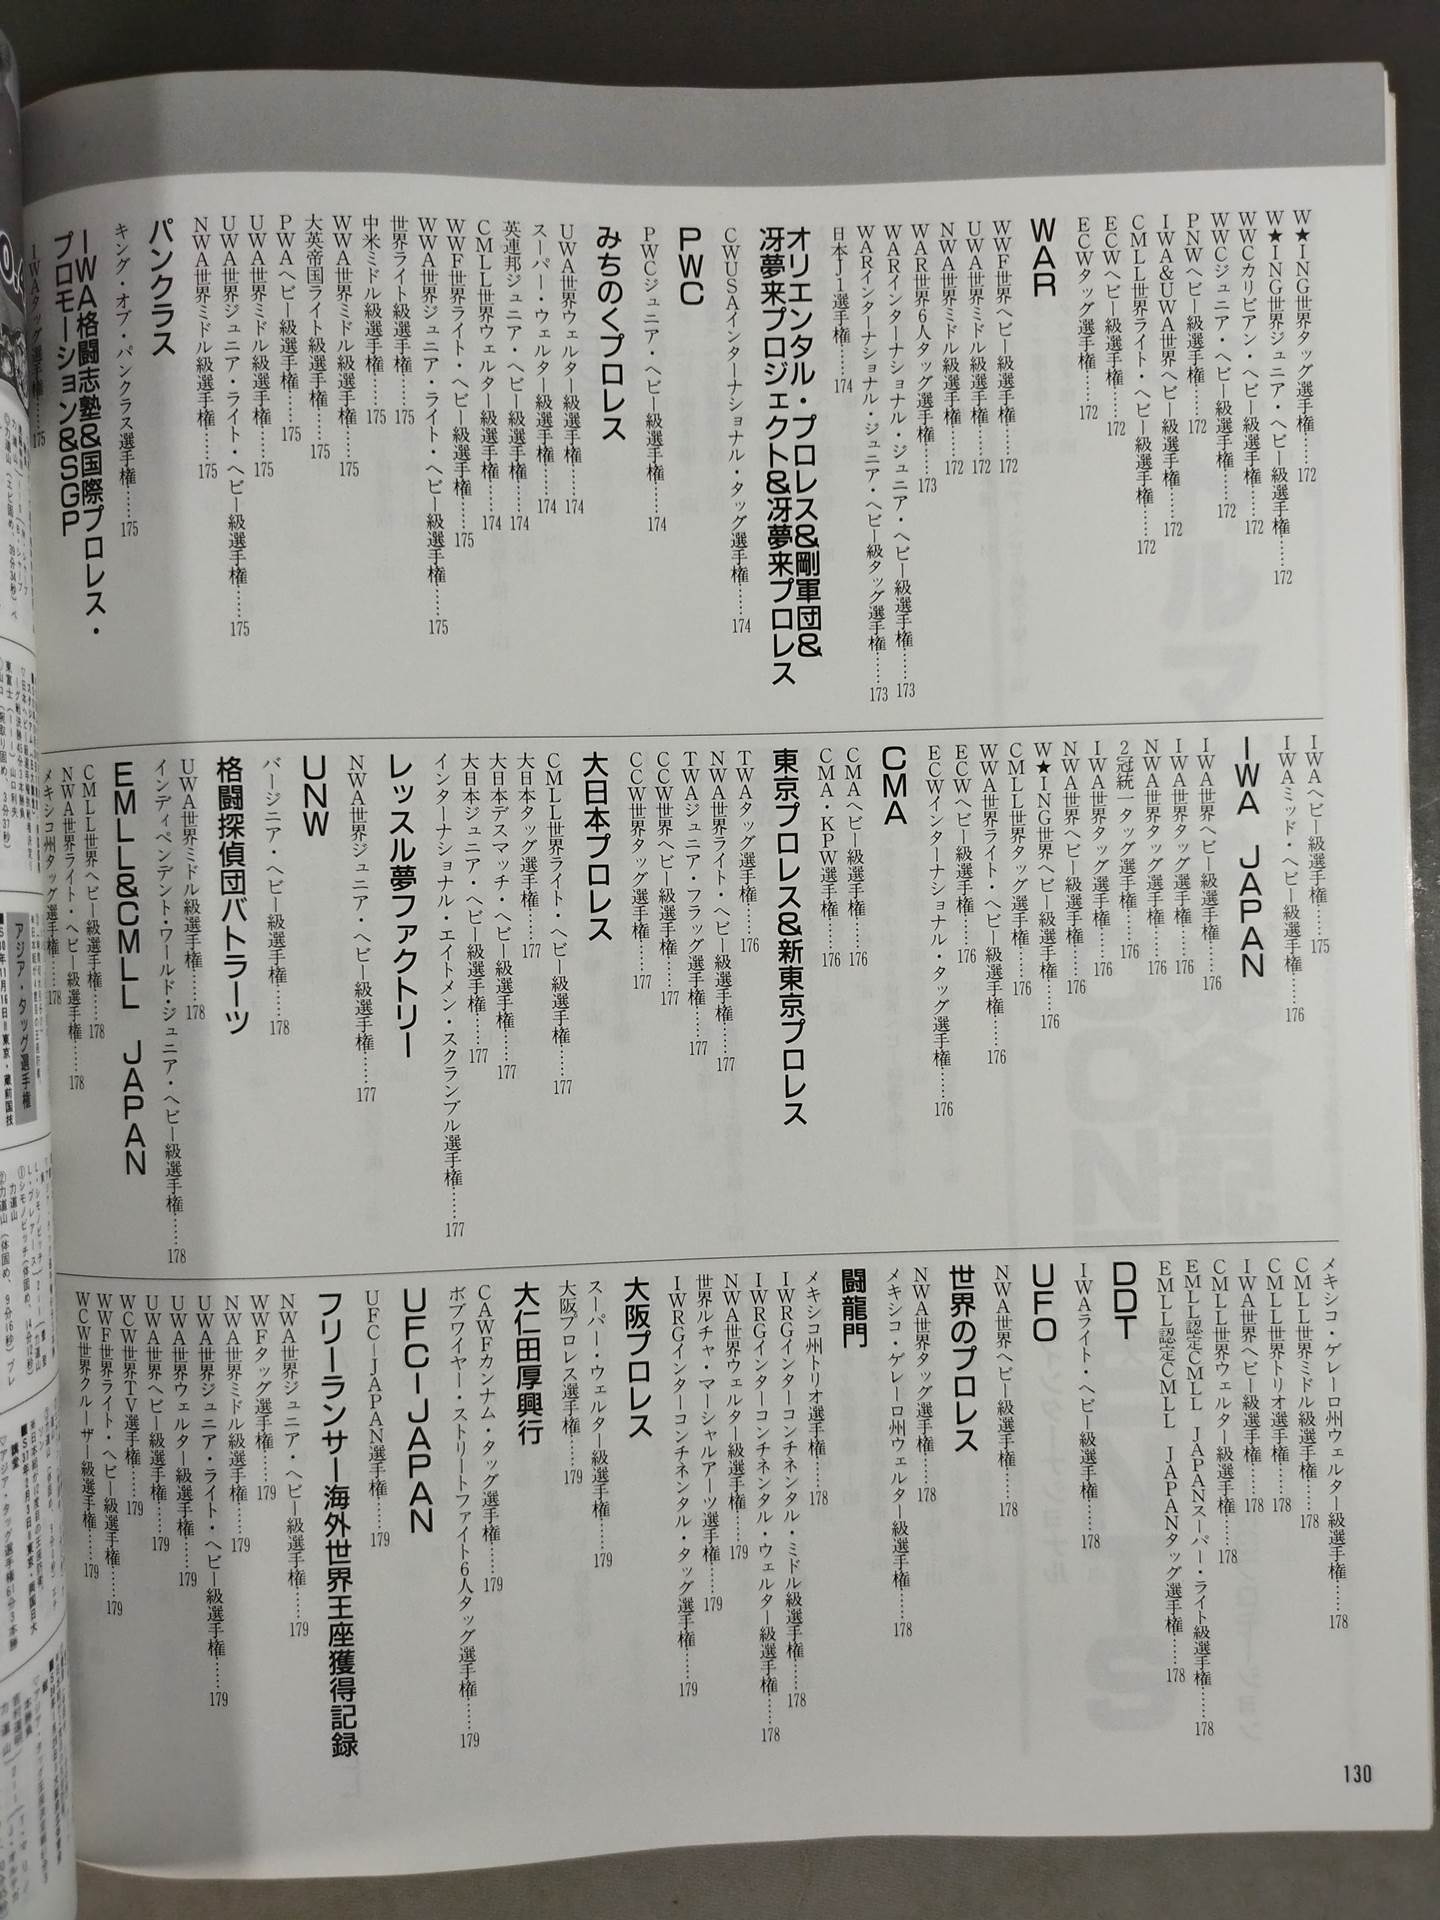 W★ING世界タッグ選手権……172
W★ING世界ジュニア・ヘビー級選手権……172
WWCカリビアン・ヘビー級選手権……172
WWCジュニア・ヘビー級選手権……172
PNWヘビー級選手権……172
IWA&UWA世界ヘビー級選手権……172
CMLL世界ライト・ヘビー級選手権……172
ECWヘビー級選手権……172
ECWタッグ選手権……172
WAR
WWF世界ヘビー級選手権……172
UWA世界ミドル級選手権……172
NWA世界ミドル級選手権……172
WAR世界6人タッグ選手権……173
WARインターナショナル・ジュニア・ヘビー級選手権……173
WARインターナショナル・ジュニア・ヘビー級タッグ選手権……173
日本J1選手権……174
オリエンタル・プロレス&剛軍団&
冴夢来プロジェクト&冴夢来プロレス
CWUSAインターナショナル・タッグ選手権……174
PWC
PWCジュニア・ヘビー級選手権……174
みちのくプロレス
UWA世界ウェルター級選手権……174
スーパー・ウェルター級選手権……174
英連邦ジュニア・ヘビー級選手権……174
CMLL世界ウェルター級選手権……174
WWF世界ライト・ヘビー級選手権……175
WWA世界ジュニア・ライト・ヘビー級選手権……175
世界ライト級選手権……175
中米ミドル級選手権……175
WWA世界ミドル級選手権……175
大英帝国ライト級選手権……175
PWAヘビー級選手権……175
UWA世界ミドル級選手権……175
UWA世界ジュニア・ライト・ヘビー級選手権……175
NWA世界ミドル級選手権……175
パンクラス
キング・オブ・パンクラス選手権……175
IWA格闘志塾&国際プロレス・
プロモーション&SGP
IWAタッグ選手権……175
IWAヘビー級選手権……175
IWAミッド・ヘビー級選手権……176
IWA JAPAN
IWA世界ヘビー級選手権……176
IWA世界タッグ選手権……176
NWA世界タッグ選手権……176
2冠統一タッグ選手権……176
IWA世界タッグ選手権……176
NWA世界ヘビー級選手権……176
W★ING世界ヘビー級選手権……176
CMLL世界タッグ選手権……176
WWA世界ライト・ヘビー級選手権……176
ECWヘビー級選手権……176
ECWインターナショナル・タッグ選手権……176
CMA
CMAヘビー級選手権……176
CMA・KPW選手権……176
東京プロレス&新東京プロレス
TWAタッグ選手権……176
NWA世界ライト・ヘビー級選手権……177
TWAジュニア・フラッグ選手権……177
CCW世界ヘビー級選手権……177
CCW世界タッグ選手権……177
大日本プロレス
CMLL世界ライト・ヘビー級選手権……177
大日本タッグ選手権……177
大日本デスマッチ・ヘビー級選手権……177
大日本ジュニア・ヘビー級選手権……177
インターナショナル・エイトメン・スクランブル選手権……177
レッスル夢ファクトリー
NWA世界ジュニア・ヘビー級選手権……177
UNW
バージニア・ヘビー級選手権……178
格闘探偵団バトラーツ
UWA世界ミドル級選手権……178
インディペンデント・ワールド・ジュニア・ヘビー級選手権……178
EMLL&CMLL JAPAN
CMLL世界ヘビー級選手権……178
NWA世界ライト・ヘビー級選手権……178
メキシコ州タッグ選手権……178
メキシコ・ゲレーロ州ウェルター級選手権……178
CMLL世界ミドル級選手権……178
CMLL世界トリオ選手権……178
IWA世界ヘビー級選手権……178
CMLL世界ウェルター級選手権……178
EMLL認定CMLL JAPANスーパー・ライト級選手権……178
EMLL認定CMLL JAPANタッグ選手権……178
DDT
IWAライト・ヘビー級選手権……178
UFO
NWA世界ヘビー級選手権……178
世界のプロレス
NWA世界タッグ選手権……178
メキシコ・ゲレーロ州ウェルター級選手権……178
闘龍門
メキシコ州トリオ選手権……178
IWRGインターコンチネンタル・ミドル級選手権……178
IWRGインターコンチネンタル・ウェルター級選手権……178
NWA世界ウェルター級選手権……179
世界ルチャ・マーシャルアーツ選手権……179
IWRGインターコンチネンタル・タッグ選手権……179
大阪プロレス
スーパー・ウェルター級選手権……179
大阪プロレス選手権……179
大仁田厚興行
CAWFカンナム・タッグ選手権……179
ボブワイヤー・ストリートファイト6人タッグ選手権……179
UFC-JAPAN
UFC-JAPAN選手権……179
フリーランサー海外世界王座獲得記録
NWA世界ジュニア・ヘビー級選手権……179
WWFタッグ選手権……179
NWA世界ミドル級選手権……179
UWA世界ジュニア・ライト・ヘビー級選手権……179
UWA世界ウェルター級選手権……179
UWA世界ヘビー級選手権……179
WCW世界TV選手権……179
WWF世界ライト・ヘビー級選手権……179
WCW世界クルーザー級選手権……179
130
アジア・タッグ選手権